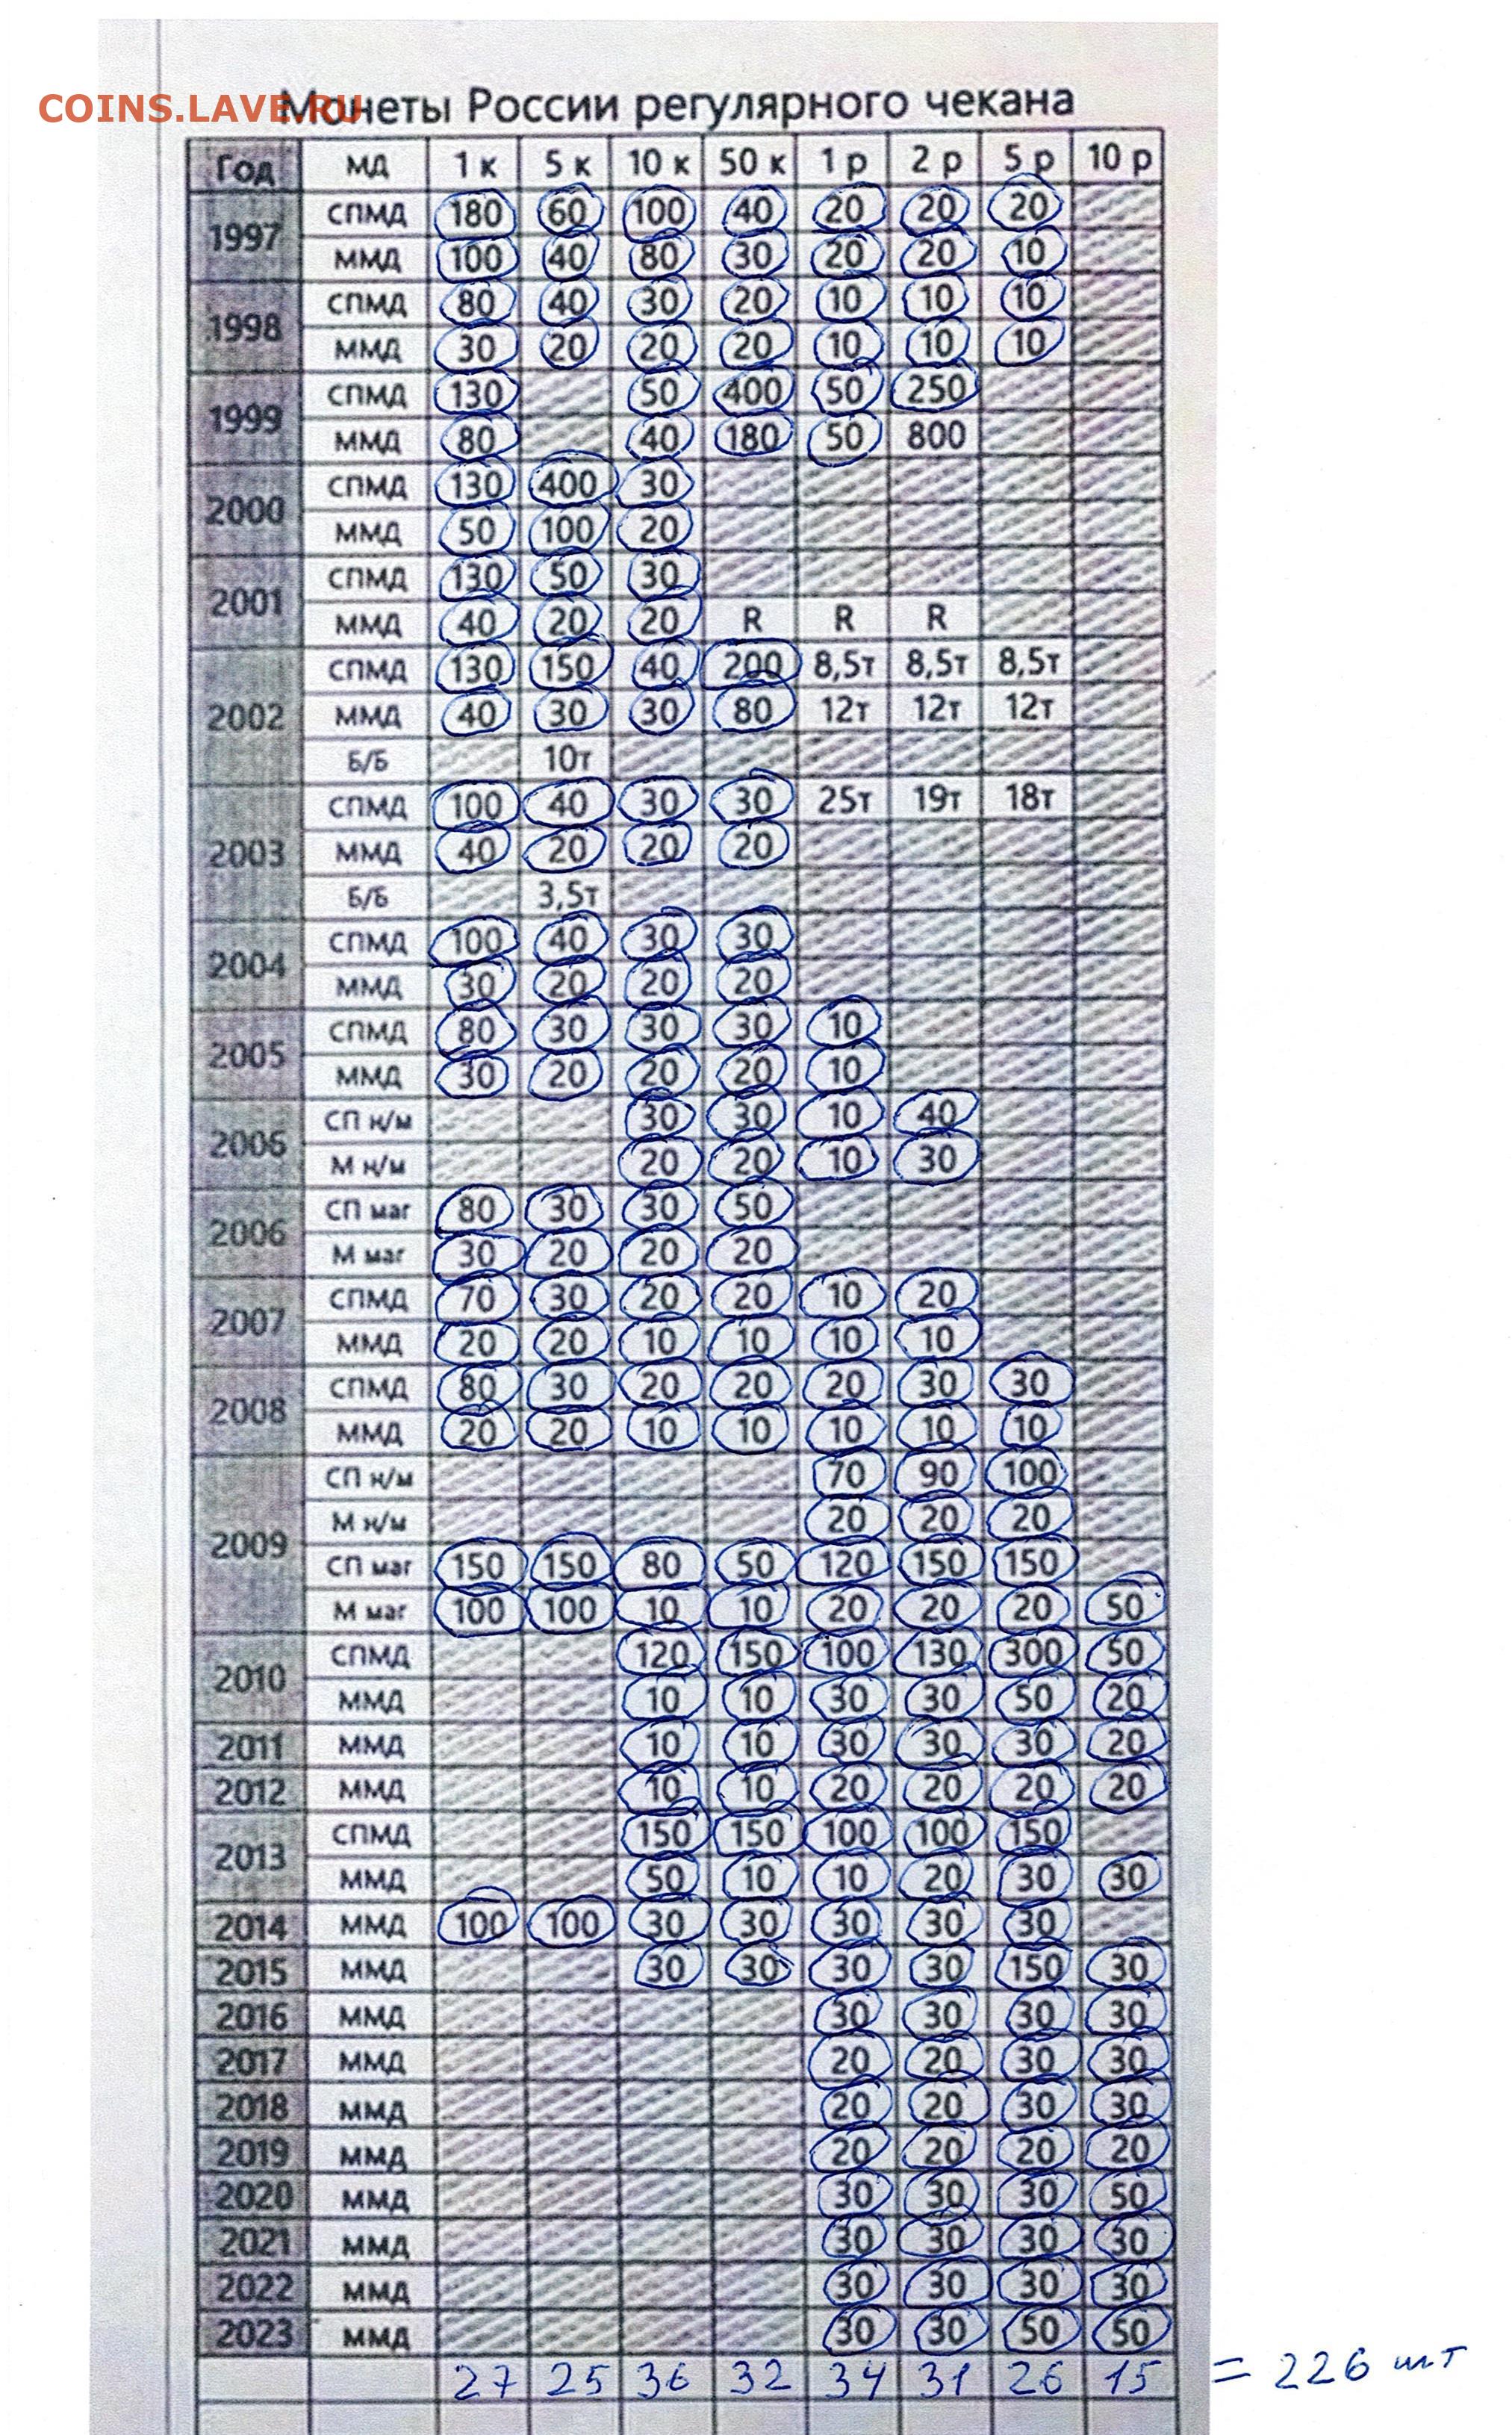 COINS.LAVE.RU
Монеты России регулярного чекана
Год МД 1 к 5 к 10 к 50 к 1 р 2 р 5 р 10 р
1997 СПМД 180 60 100 40 20 20 20
ММД 100 40 80 30 20 20 10
1998 СПМД 80 40 30 20 10 10 10
ММД 30 20 20 20 10 10 10
1999 СПМД 130 50 400 50 250
ММД 80 40 180 50 800
2000 СПМД 130 400 30
ММД 50 100 20
2001 СПМД 130 50 30
ММД 40 20 20 R R R
2002 СПМД 130 150 40 200 8,5т 8,5т 8,5т
ММД 40 30 30 80 12т 12т 12т
Б/Б 10т
2003 СПМД 100 40 30 30 25т 19т 18т
ММД 40 20 20 20
Б/Б 3,5т
2004 СПМД 100 40 30 30
ММД 30 20 20 20
2005 СПМД 80 30 30 30 10
ММД 30 20 20 20 10
2006 СП н/м 30 30 10 40
М н/м 20 20 10 30
2006 СП маг 80 30 30 50
М маг 30 20 20 20
2007 СПМД 70 30 20 20 10 20
ММД 20 20 10 10 10 10
2008 СПМД 80 30 20 20 20 30 30
ММД 20 20 10 10 10 10 10
2009 СП н/м 70 90 100
М н/м 20 20 20
СП маг 150 150 80 50 120 150 150
М маг 100 100 10 10 20 20 20 50
2010 СПМД 120 150 100 130 300 50
ММД 10 10 30 30 50 20
2011 ММД 10 10 30 30 30 20
2012 ММД 10 10 20 20 20 20
2013 СПМД 150 150 100 100 150
ММД 50 10 10 20 30 30
2014 ММД 100 100 30 30 30 30 30
2015 ММД 30 30 30 30 150 30
2016 ММД 30 30 30 30
2017 ММД 20 20 30 30
2018 ММД 20 20 30 30
2019 ММД 20 20 20 20
2020 ММД 30 30 30 50
2021 ММД 30 30 30 30
2022 ММД 30 30 30 30
2023 ММД 30 30 50 50
27 25 36 32 34 31 26 15 = 226 шт